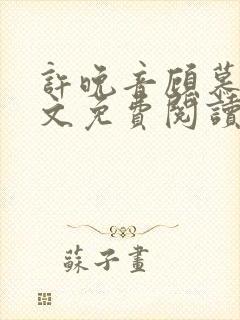 許晚音顧慕
文免費閱讀
蘇子畫